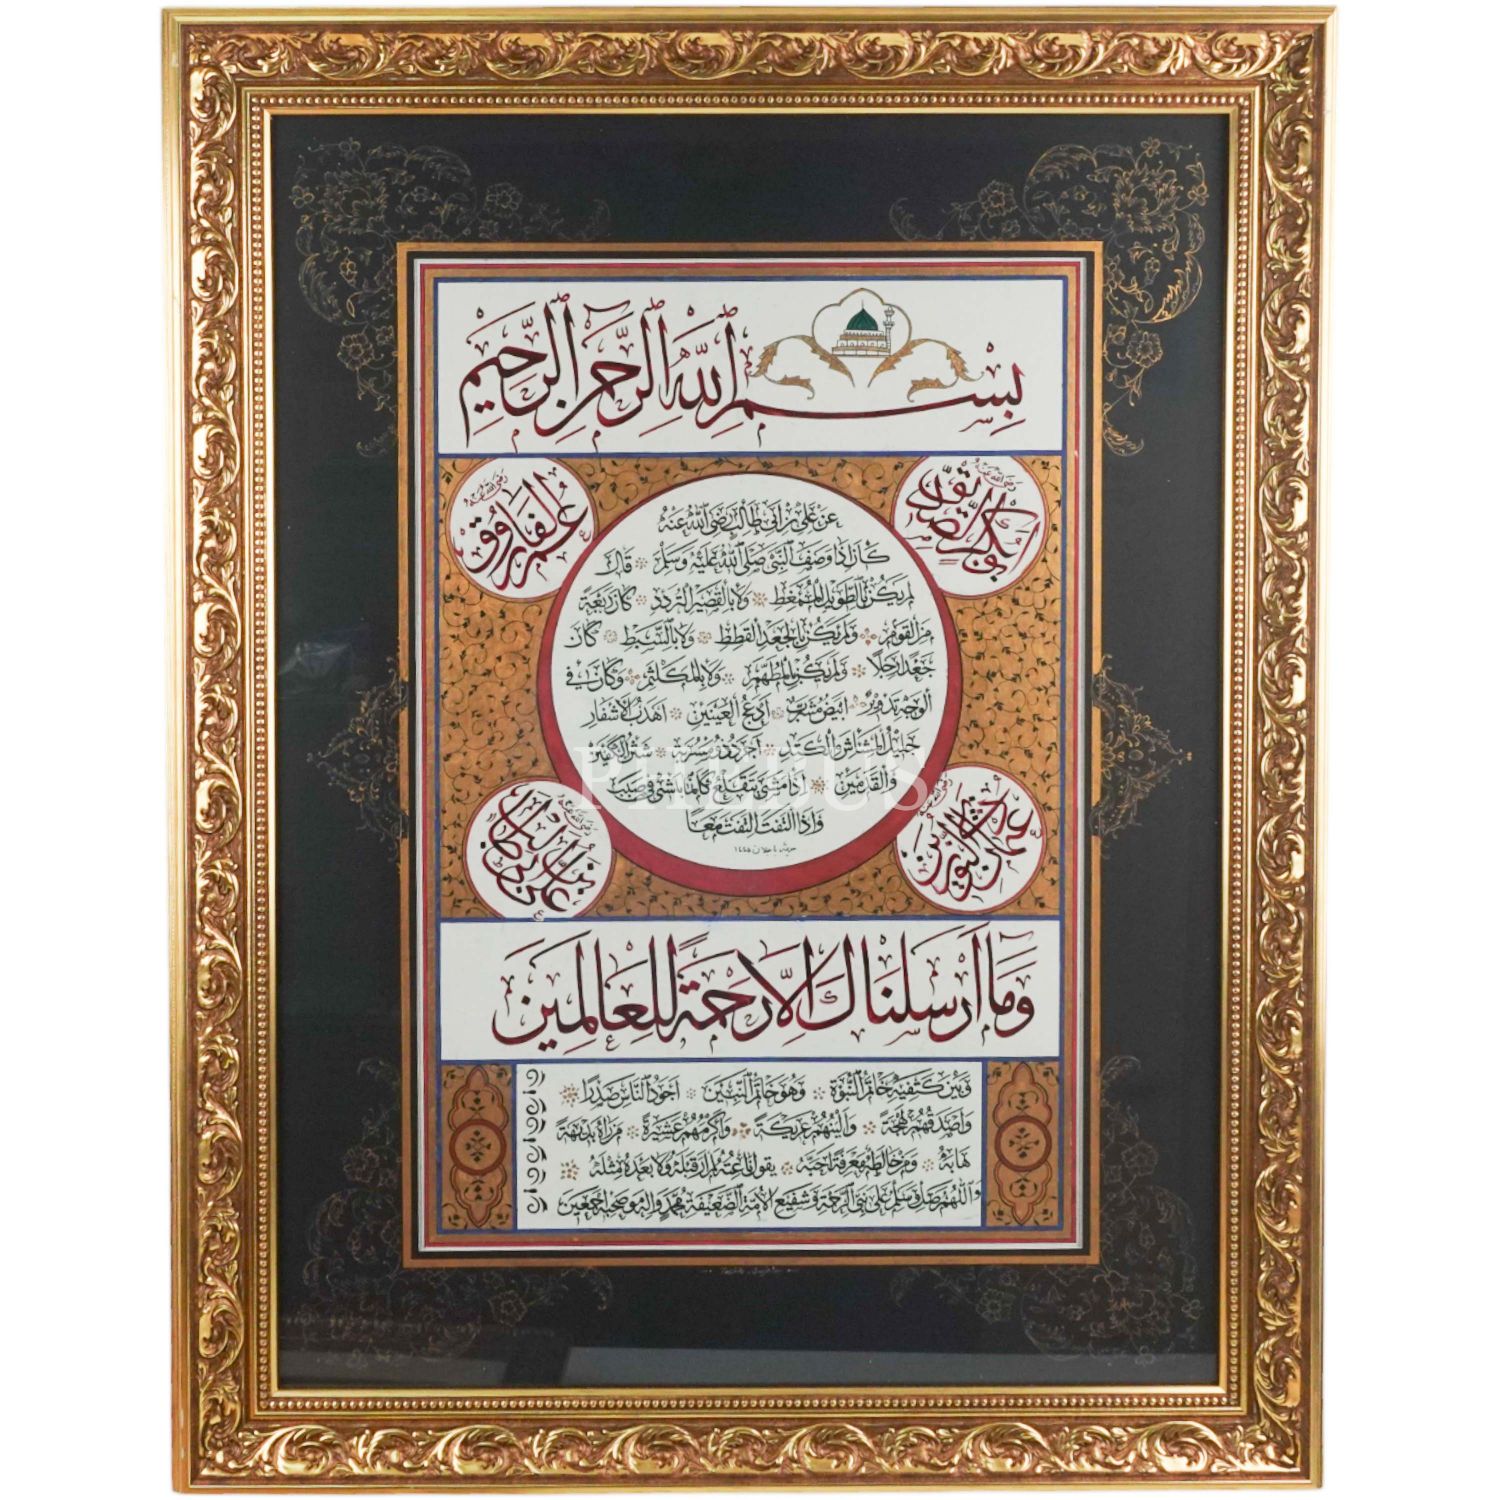 بِسْمِ ٱللّٰهِ ٱلرَّحْمٰنِ ٱلرَّحِيمِ
ابى بكر الصديق رضى الله عنه
عمر الفاروق رضى الله عنه
عن على بن ابى طالب رضى الله عنه
كان اذا وصف النبى صلى الله عليه وسلم قال
لم يكن بالطويل الممغط ولا بالقصير المتردد كان ربعة
من القوم ولم يكن بالجعد القطط ولا بالسبط كان
جعدا رجلا ولم يكن بالمطهم ولا بالمكلثم وكان فى
الوجه تدوير ابيض مشرب ادعج العينين اهدب الاشفار
جليل المشاش والكتد اجرد ذو مسربة شثن الكفين
والقدمين اذا مشى تقلع كانما يمشى فى صبب
واذا التفت التفت معا
١٤٤٥
عثمان ذى النورين رضى الله عنه
على بن ابى طالب رضى الله عنه
PHEBUS
وَمَا أَرْسَلْنَاكَ إِلَّا رَحْمَةً لِلْعَالَمِينَ
وبين كتفيه خاتم النبوة وهو خاتم النبيين اجود الناس صدرا
واصدقهم لهجة والينهم عريكة واكرمهم عشيرة من رآه بديهة
هابه ومن خالطه معرفة احبه يقول ناعته لم ار قبله ولا بعده مثله
واللهم صل وسلم على نبى الرحمة وشفيع الامة الضعيفة محمد واله وصحبه اجمعين